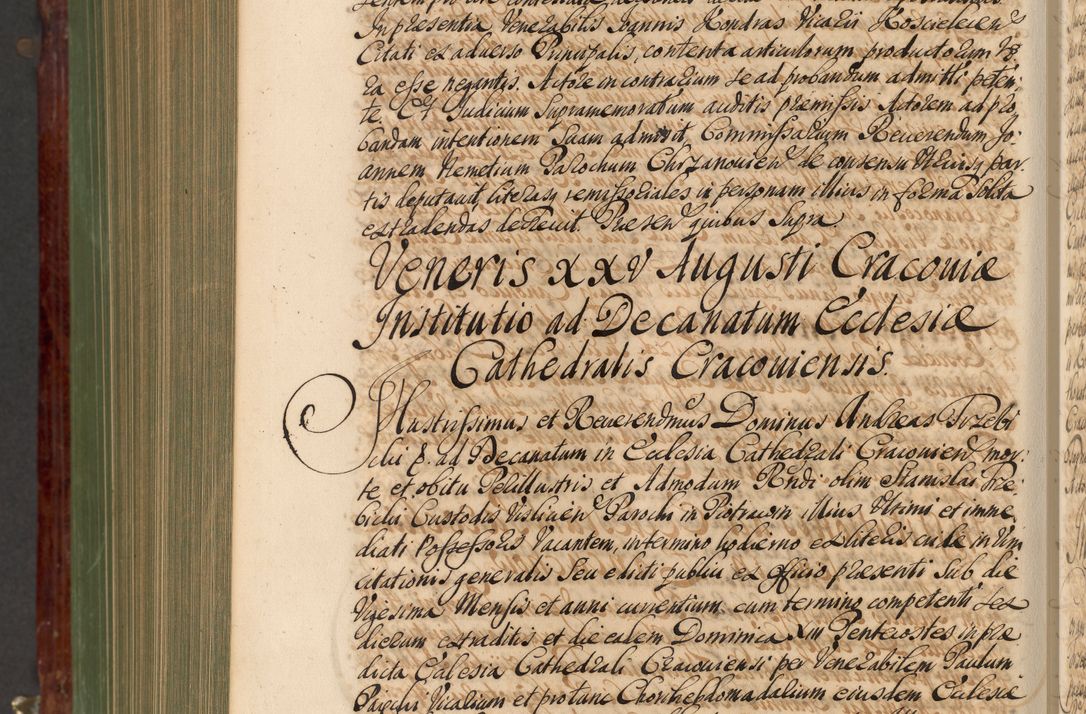 In presentia Venerabilis Joannis Kondras Vicarii Koscielecen
Citati ex adverso Principalis, contenta articulorum productorum Ve
ra esse negantis. Actore in contrarium se ad probandum admitti peten
te Et Judicium Supramemoratum auditis præmissis Actorem ad pro
bandam intentionem suam admisit, Commissarium Reverendum Jo
annem Nemetium Parochum Chrzanovien de consensu Utriusq par
tis deputavit literasq remissoriales in personam illius in forma Solita
extradendas decrevit. Presen quibus Supra.
Veneris XXV Augusti Cracoviæ
Institutio ad Decanatum Ecclesiæ
Cathedralis Cracoviensis.
Illustrissimus et Reverendmus Dominus Andreas Trzebi
cki &. ad Decanatum in Ecclesia Cathedrali Cracovien mor
te et obitu Perillustris et Admodum Rndi olim Stanislai Trze
bicki Custodis Vislicien Parochi in Piotrawin illius Ultimi et imme
diati Possessoris Vacantem, in termino hodierno ex literis cride in Vim
citationis generalis Seu edicti publici ex officio præsenti Sub die
Vigesima Mensis et anni currentium cum termino competenti sex
dierum extraditis et die eadem Dominica XIII Pentecostes in præ
dicta Ecclesia Cathedrali Cracoviensi per Venerabilem Paulum
Vicarium et pro tunc Chorihebdomadalium eiusdem Ecclesiæ